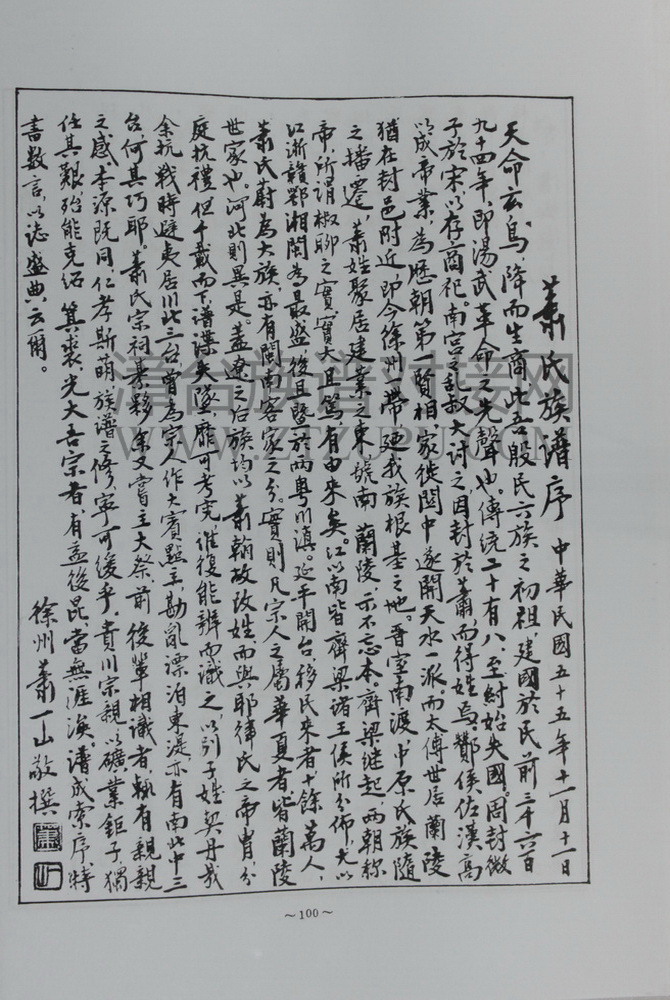 蕭氏族譜序 中華民國五十五年十一月十二日
天命玄鳥，降而生商，此吾殷民六族之初祖，建國於民前三千六百
九十四年，即湯武革命之先聲也。傳統二十有八，至紂始失國。周封微
子於宋，以存商祀。南宮之亂，叔大討之，因封於蕭，而得姓焉。酇侯佐漢高
以成帝業，為歷朝第一賢相，家徙關中，遂開天水一派。而太傅世居蘭陵
猶在封邑附近，即今徐州一帶，廼我族根基之地。晉室南渡，中原氏族隨
之播遷，蕭姓聚居建業之東，號南蘭陵，示不忘本。齊梁繼起，兩朝稱
帝，所謂椒聊之實，實大且篤，有由來矣。江以南皆齊梁諸王侯所分佈，尤以
江浙贛鄂湘閩為最盛，後且暨於兩粵川滇。延平開台，移民來者十餘萬人，
蕭氏蔚為大族，亦有閩南客家之分。實則凡宗人之屬華夏者，皆蘭陵
世家也。河北則異是。蓋遼之后族均以蕭翰故改姓，而與耶律氏之帝胄，分
庭抗禮。但千載而下，譜諜失墜，靡可考究，誰復能辨而識之，以別子姓契丹哉
余抗戰時避夷居川北三台，曾為宗人作大賓點主，勘亂漂泊東湜，亦有南北中三
台，何其巧耶。蕭氏宗祠綦夥，余又嘗主大祭，前後輩相識者，輒有親親
之感，本源既同，仁孝斯萌，族譜之修，寧可緩乎。貴川宗親以礦業鉅子，獨
任其艱，殆能克紹箕裘，光大吾宗者，有益後昆，當無涯涘。譜成索序，特
書數言，以誌盛典云爾。
徐州蕭一山敬撰
~100~
漳台族谱对接网
WWW.ZTZUPU.COM